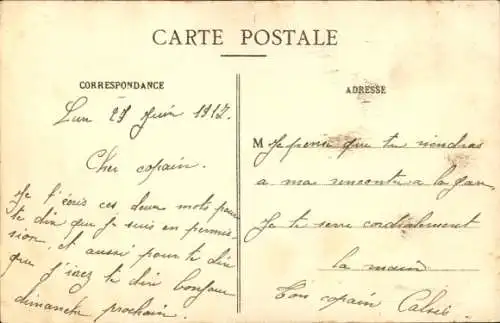 CARTE POSTALE
CORRESPONDANCE
Lun 29 Juin 1912.
Cher copain.
Je t'écris ces deux mots pour
te dire que je suis en permis-
sion, et aussi pour te dire
que j'irez te dir bonjour
dimanche prochain.
ADRESSE
M Je pense que tu viendras
a ma rencontre a la gare
Je te serre cordialement
la main
Ton copain